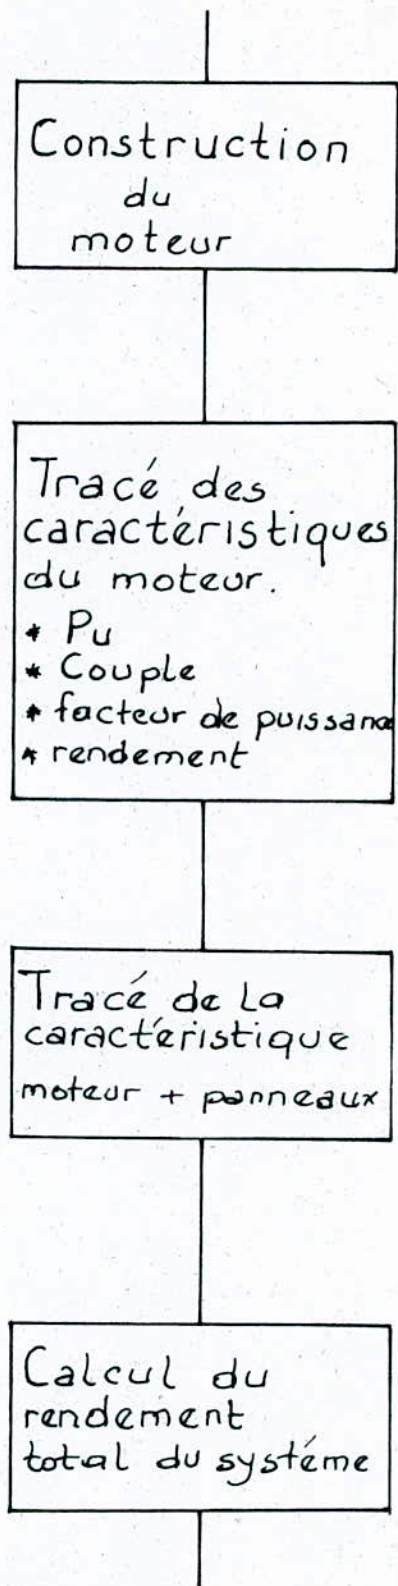 Construction
du
moteur
Tracé des
caractéristiques
du moteur.
* Pu
* Couple
* facteur de puissance
* rendement
Tracé de la
caractéristique
moteur + panneaux
Calcul du
rendement
total du systéme